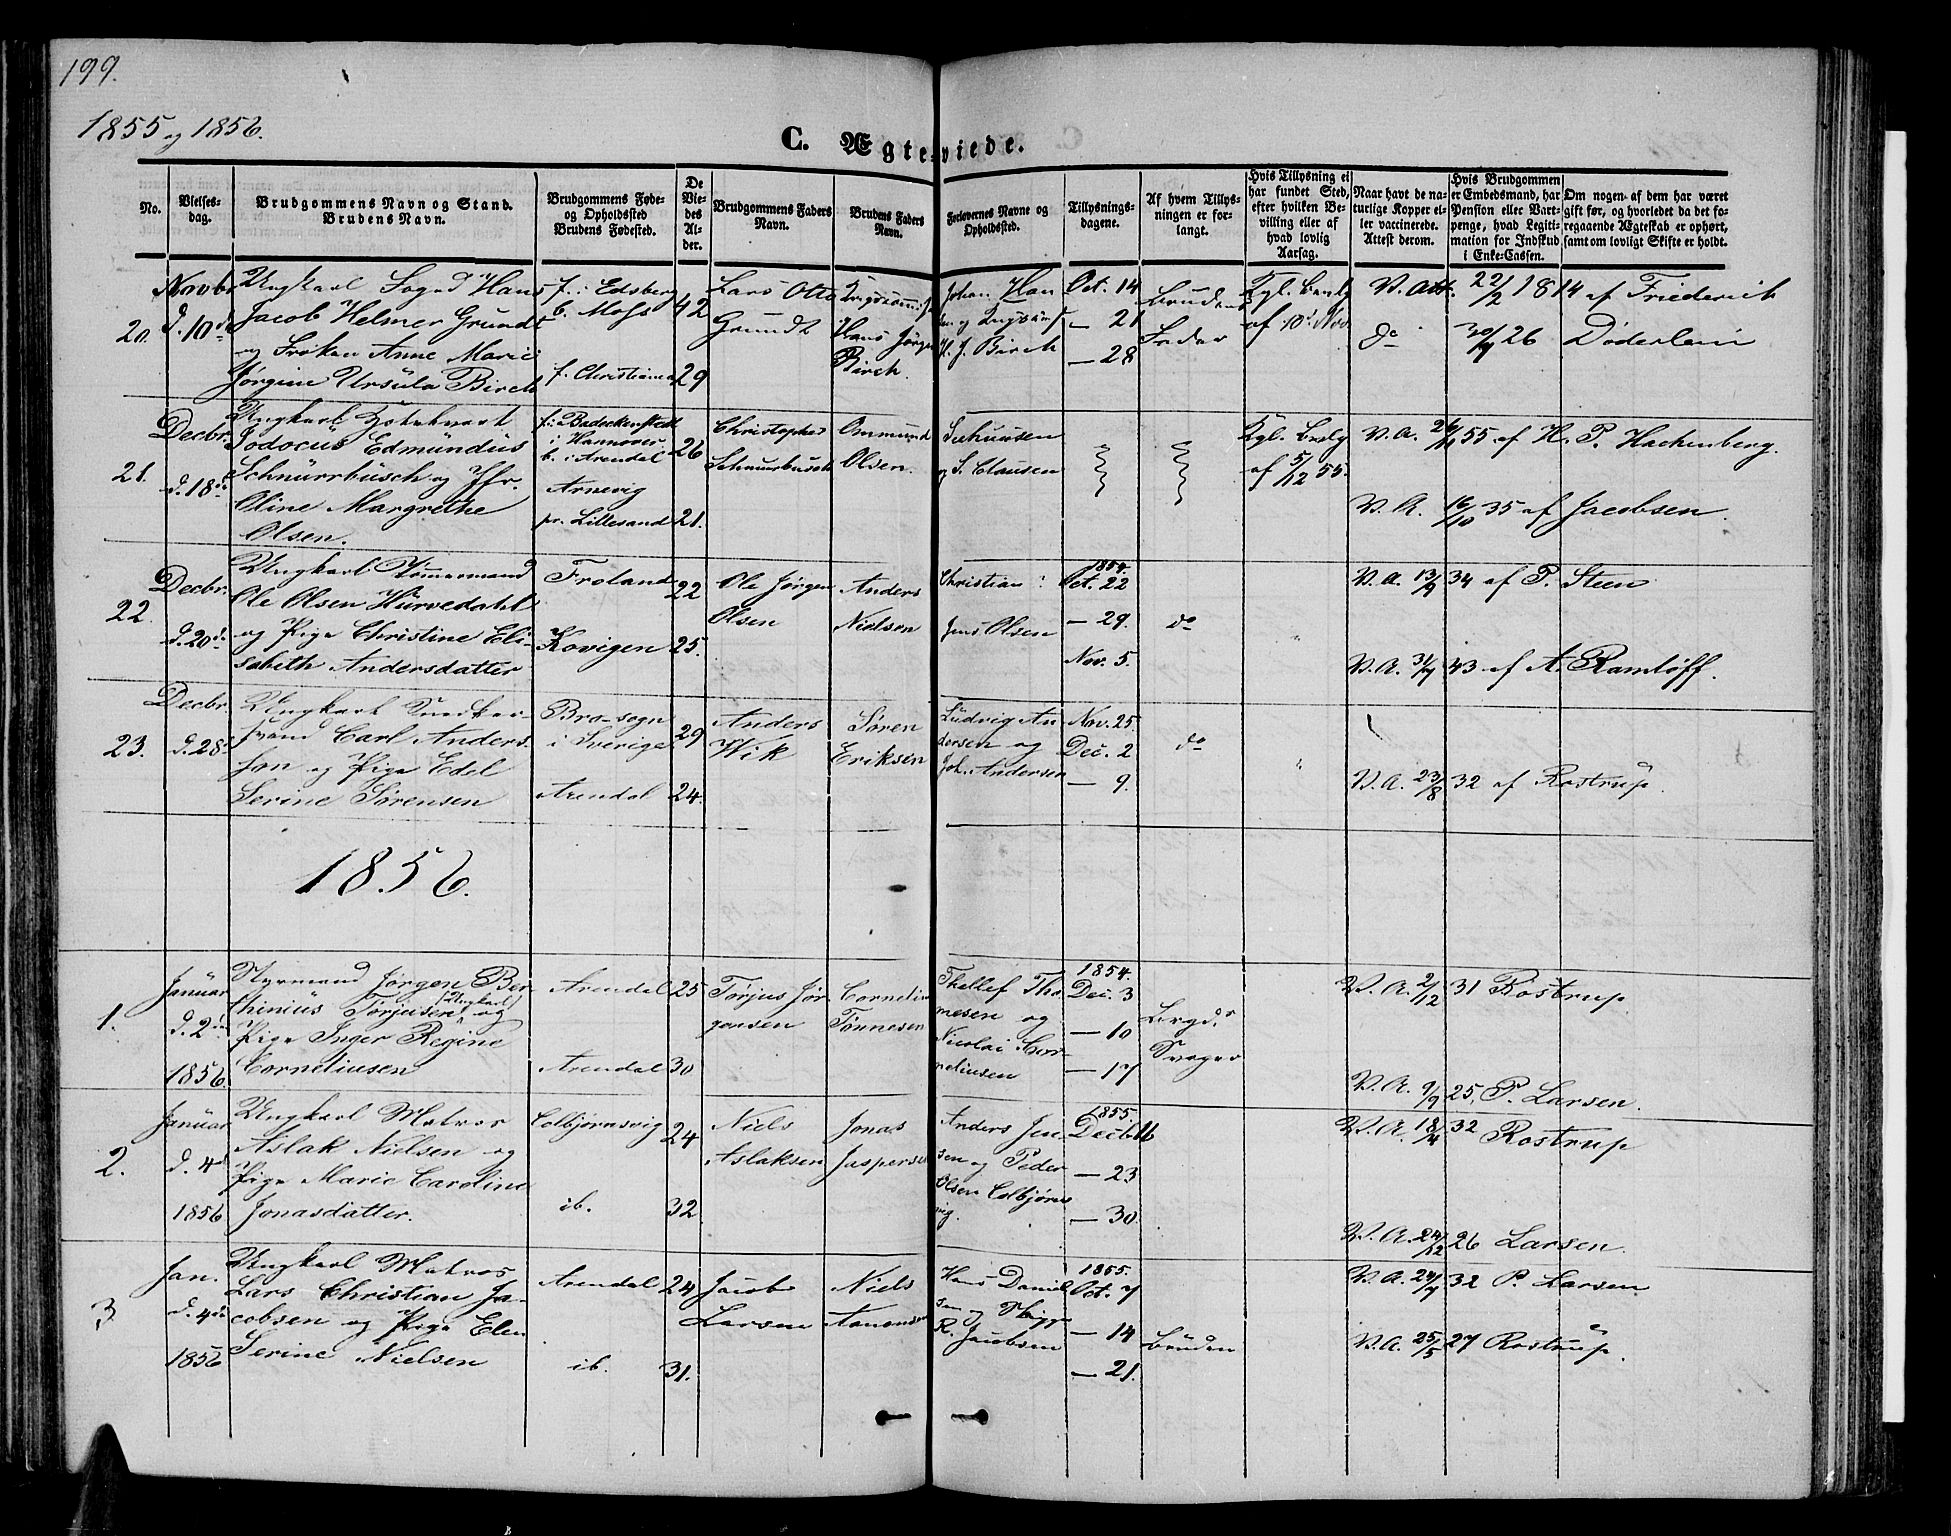 199.
1855 og 1856.
C. Ægteviede.
No.
Vielses-
dag.
Brudgommens Navn og Stand.
Brudens Navn.
Brudgommens Føde-
og Opholdssted
Brudens Fødested.
De
Vie-
des
Al-
der.
Brudgommens Faders
Navn.
Brudens Faders
Navn.
Forlovernes Navne og
Opholdssted.
Tillysnings-
dagene.
Af hvem Tillys-
ningen er for-
langt.
Hvis Tillysning ei
har fundet Sted,
efter hvilken Be-
villing eller af
hvad lovlig
Aarsag.
Naar havt de na-
turlige Kopper el-
ler vaccinerede.
Attest derom.
Hvis Brudgommen
er Embedsmand, har
Pension eller Vart-
penge, hvad Legiti-
mation for Indskud
i Enke-Cassen.
Om nogen af dem har været
gift før, og hvorledet da det fo-
regaaende Ægteskab er ophørt,
samt om lovligt Skifte er holdt.
20.
Novbr.
d. 10de
Ungkarl Foged Hans
Jacob Helmer Grundt
og Frøken Anne Marie
Jørgine Ursula Birch
f. i Edsberg
b. Moss
f. Christiania
42
29
Lars Otto
Grundt
Hans Jørgen
Birch.
Johan Han
sen og
H. J. Birch
Oct. 14
— 21
— 28
Brudens
Fader
Kgl. Bevlg
af 10d Nov.
V. Att. 22/2 1814 af Friederich
do 30/9 26 Døderlein
21.
Decbr.
d. 18de
Ungkarl
Jodocus Edmundus
Schnurrbusch og Jfr.
Oline Margrethe
Olsen.
f. i Badeckenstedt
i Hannover
b. i Arendal
Arnevig
pr. Lillesand
26
21.
Christopher
Schnurrbusch
Ommund
Olsen.
og S. Clausen
Kgl. Bevlg
af 5/12 55.
V. A. 26/11 55 af H. P. Hackenberg.
V. A. 16/10 35 af Jacobsen.
22.
Decbr.
d. 20de
Ungkarl Tømmermand
Ole Olsen Hurvedahl
og Pige Christine Eli-
sabeth Andersdatter
Froland
Kovigen
22
25.
Ole Jørgen
Olsen
Anders
Nielsen
Christian
Jens Olsen
1854.
Oct. 22
— 29.
Nov. 5.
do
"
V. A. 13/9 34 af P. Steen
V. A. 31/7 43 af A. Ramløff.
23.
Decbr.
d. 28de
Ungkarl Snedker-
svend Carl Anders-
son og Pige Edel
Serine Sørensen
Bro-sogn
i Sverige
Arendal
29
24.
Anders
Wik
Søren
Eriksen
Ludvig An
dersen og
Joh. Andersen
Nov. 25.
Dec. 2
— 9.
do
"
V. A. 23/8 32 af Rostrup.
1856.
1.
Januar
d. 2den
1856.
Styrmand Jørgen Ber-
thinius Torjusen (Ungkarl) og
Pige Inger Regine
Corneliusen
Arendal
Arendal
25
30
Torjus Jør
gensen
Cornelius
Tønnesen
Thellef Tho
mesen og
Nicolai Cor-
neliusen
1854.
Dec. 3
— 10
— 17
Brgds
Svoger
V. A. 2/12 31 Rostrup.
V. A. 9/9 25, P. Larsen.
2.
Januar
d. 4de
1856
Ungkarl Matros
Aslak Nielsen og
Pige Marie Caroline
Jonasdatter.
Colbjørnsvig
ib.
24
32.
Niels
Aslaksen
Jonas
Jaspersen
Anders Jen
sen og Peder
Olsen Colbjørns
vig.
1855.
Decbr 16
— 23
— 30.
V. A. 18/4 32 Rostrup
V. A. 24/12 26 Larsen.
3
Jan.
d. 4de
1856
Ungkarl Matros
Lars Christian Ja-
cobsen og Pige Elen
Serine Nielsen
Arendal
ib.
24
31.
Jacob
Larsen
Niels
Aanonsen
Hans Daniel
sen og
R. Jacobsen
1855.
Oct. 7
— 14
— 21.
Bruden
V. A. 24/7 32 P. Larsen
V. A. 25/5 27 Rostrup.